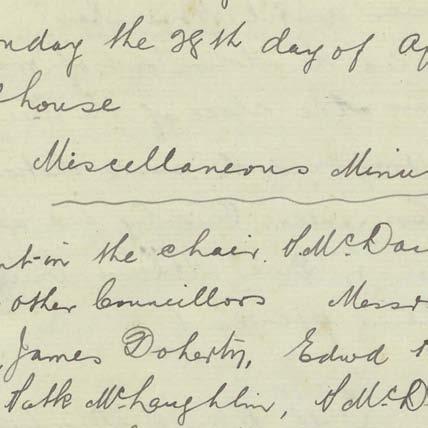 nday the 28th day of Ap
house
Miscellaneous Minu
nt-in the chair. S. McDa
other Councillors Messr
James Doherty, Edwd
Patk McLaughlin, S McD